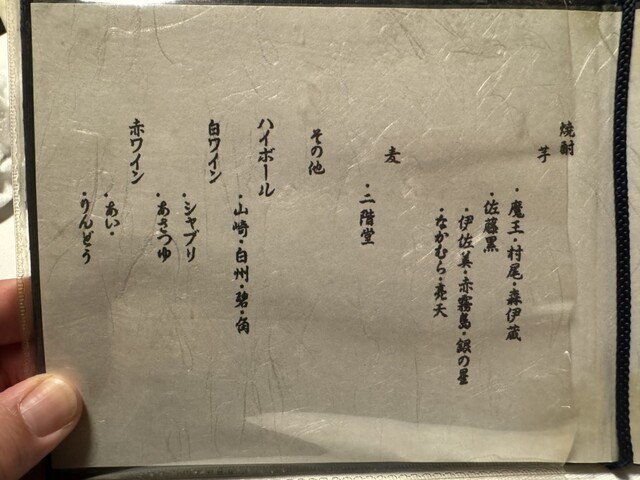 焼酎
芋
・魔王・村尾・森伊蔵
・佐藤黒
・伊佐美・赤霧島・銀の星
・なかむら・亮天
麦
・二階堂
その他
ハイボール
・山崎・白州・碧・角
白ワイン
・シャブリ
・あさつゆ
赤ワイン
・あい・
・りんどう